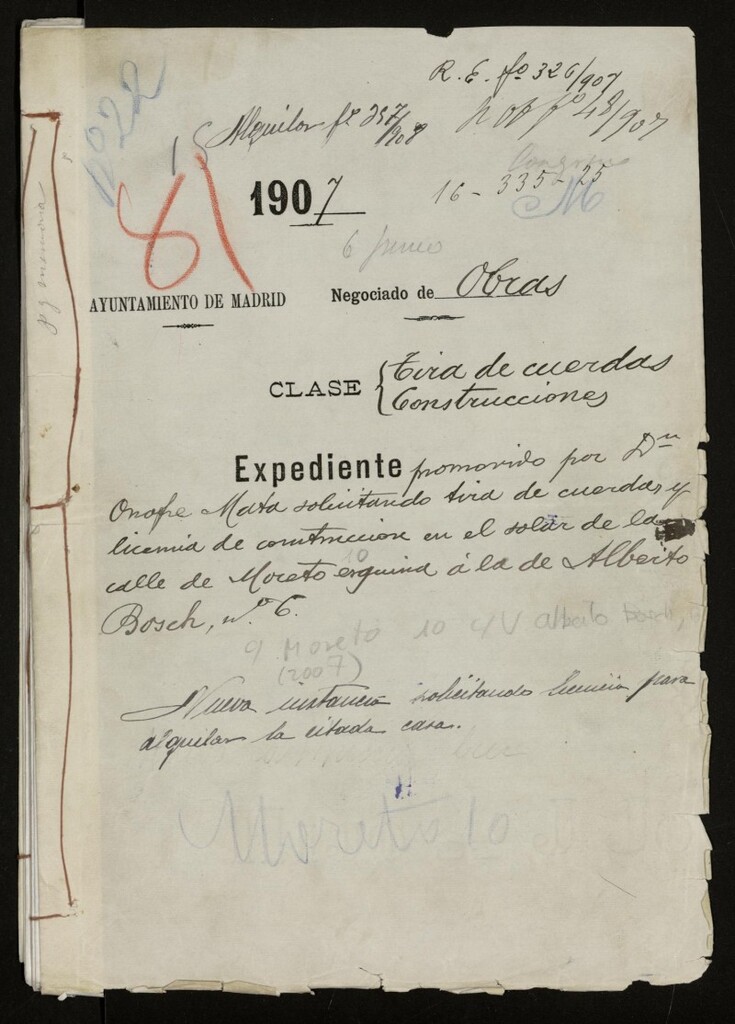 R. E. fº 326/907
1022
Alquilar fº 257/908
Nob fº 48/907
15
81
Congreso
1907
16-335-25
M
6 Junio
AYUNTAMIENTO DE MADRID
Negociado de Obras
CLASE { Tira de cuerdas
Construcciones
Expediente promovido por Dn
Onofre Mata solicitando tira de cuerdas y
licencia de construccion en el solar de la
10
calle de Moreto esquina á la de Alberto
Bosch, nº 6.
9 Moreto 10 c/v Alberto Bosch, 6
(2007)
Nueva instancia solicitando licencia para
alquilar la citada casa.
Moreto 10